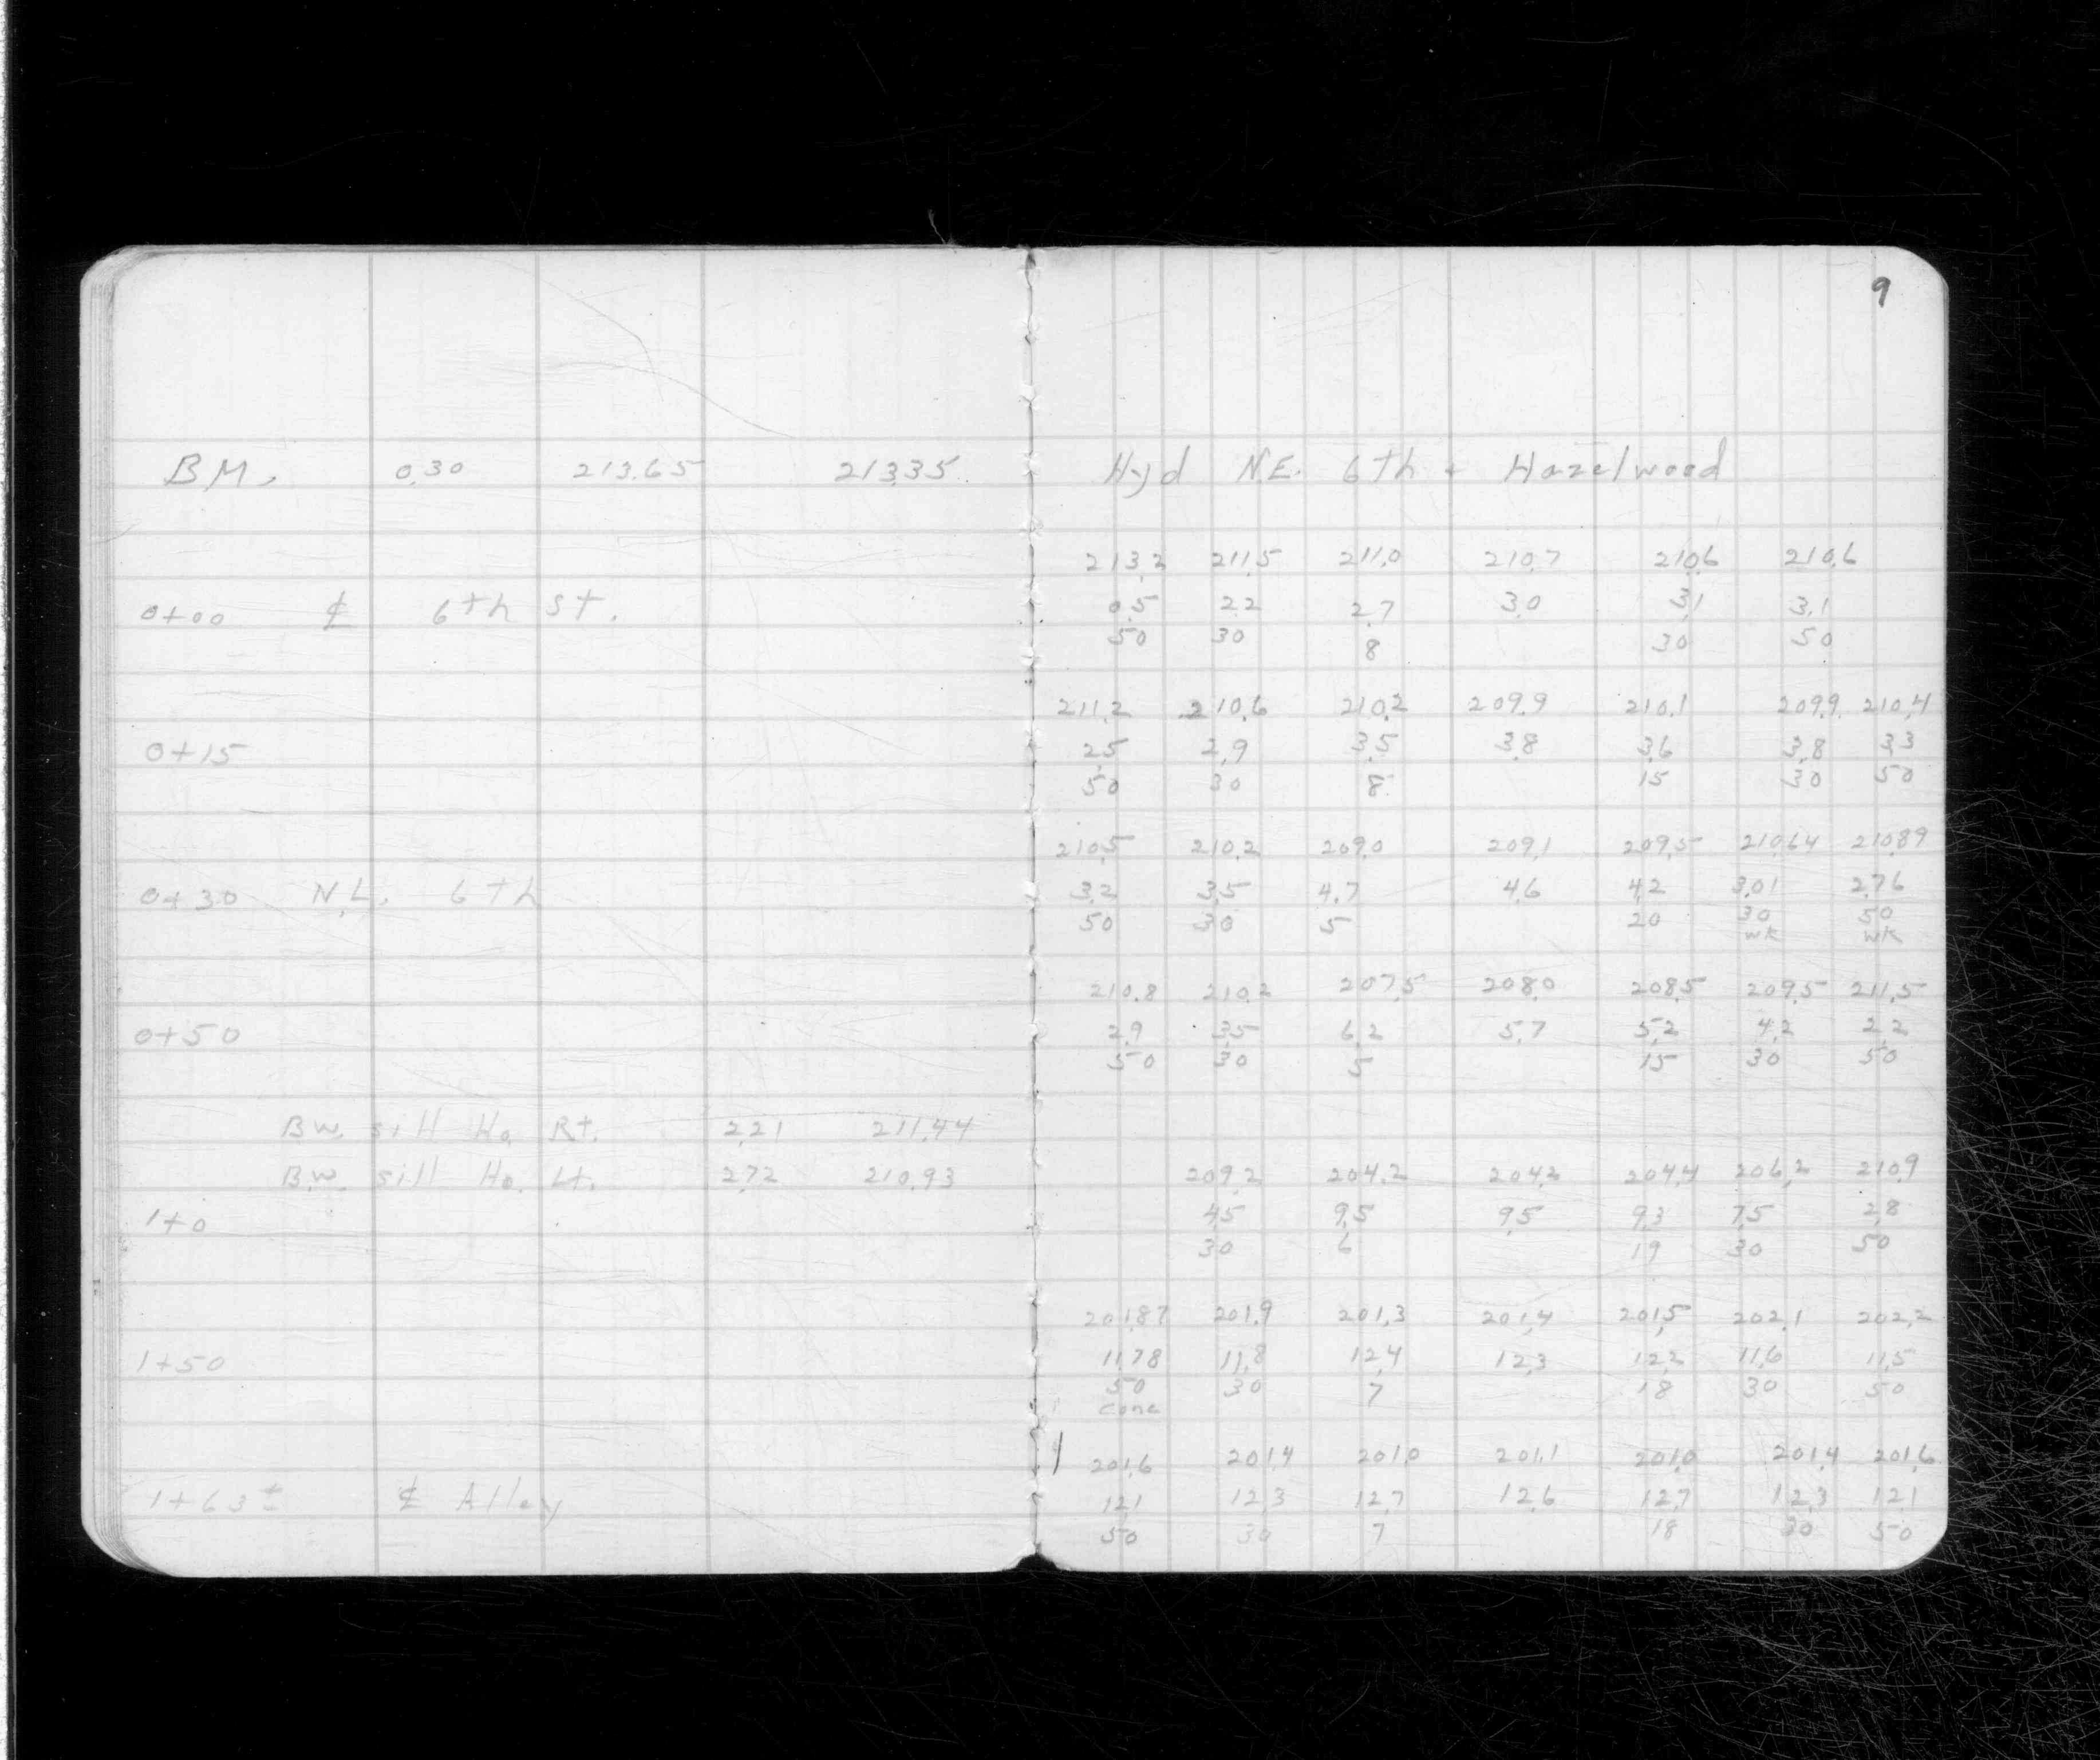 9
B.M. 0.30 213.65 213.35 Hyd N.E. 6th + Hazelwood
213.2 211.5 211.0 210.7 210.6 210.6
0+00 ₵ 6th St. 0.5 2.2 2.7 3.0 3.1 3.1
50 30 8 30 50
211.2 210.6 210.2 209.9 210.1 209.9 210.4
0+15 2.5 2.9 3.5 3.8 3.6 3.8 3.3
50 30 8 15 30 50
210.5 210.2 209.0 209.1 209.5 210.64 210.89
0+30 N.L. 6th 3.2 3.5 4.7 4.6 4.2 3.01 2.76
50 30 5 20 30 50
wk wk
210.8 210.2 207.5 208.0 208.5 209.5 211.5
0+50 2.9 3.5 6.2 5.7 5.2 4.2 2.2
50 30 5 15 30 50
B.W. sill Ho. Rt. 2.21 211.44
B.W. sill Ho. Lt. 2.72 210.93 209.2 204.2 204.2 204.4 206.2 210.9
1+0 4.5 9.5 9.5 9.3 7.5 2.8
30 6 19 30 50
201.87 201.9 201.3 201.4 201.5 202.1 202.2
1+50 11.78 11.8 12.4 12.3 12.2 11.6 11.5
50 30 7 18 30 50
conc
201.6 201.4 201.0 201.1 201.0 201.4 201.6
1+63± ₵ Alley 12.1 12.3 12.7 12.6 12.7 12.3 12.1
50 30 7 18 30 50